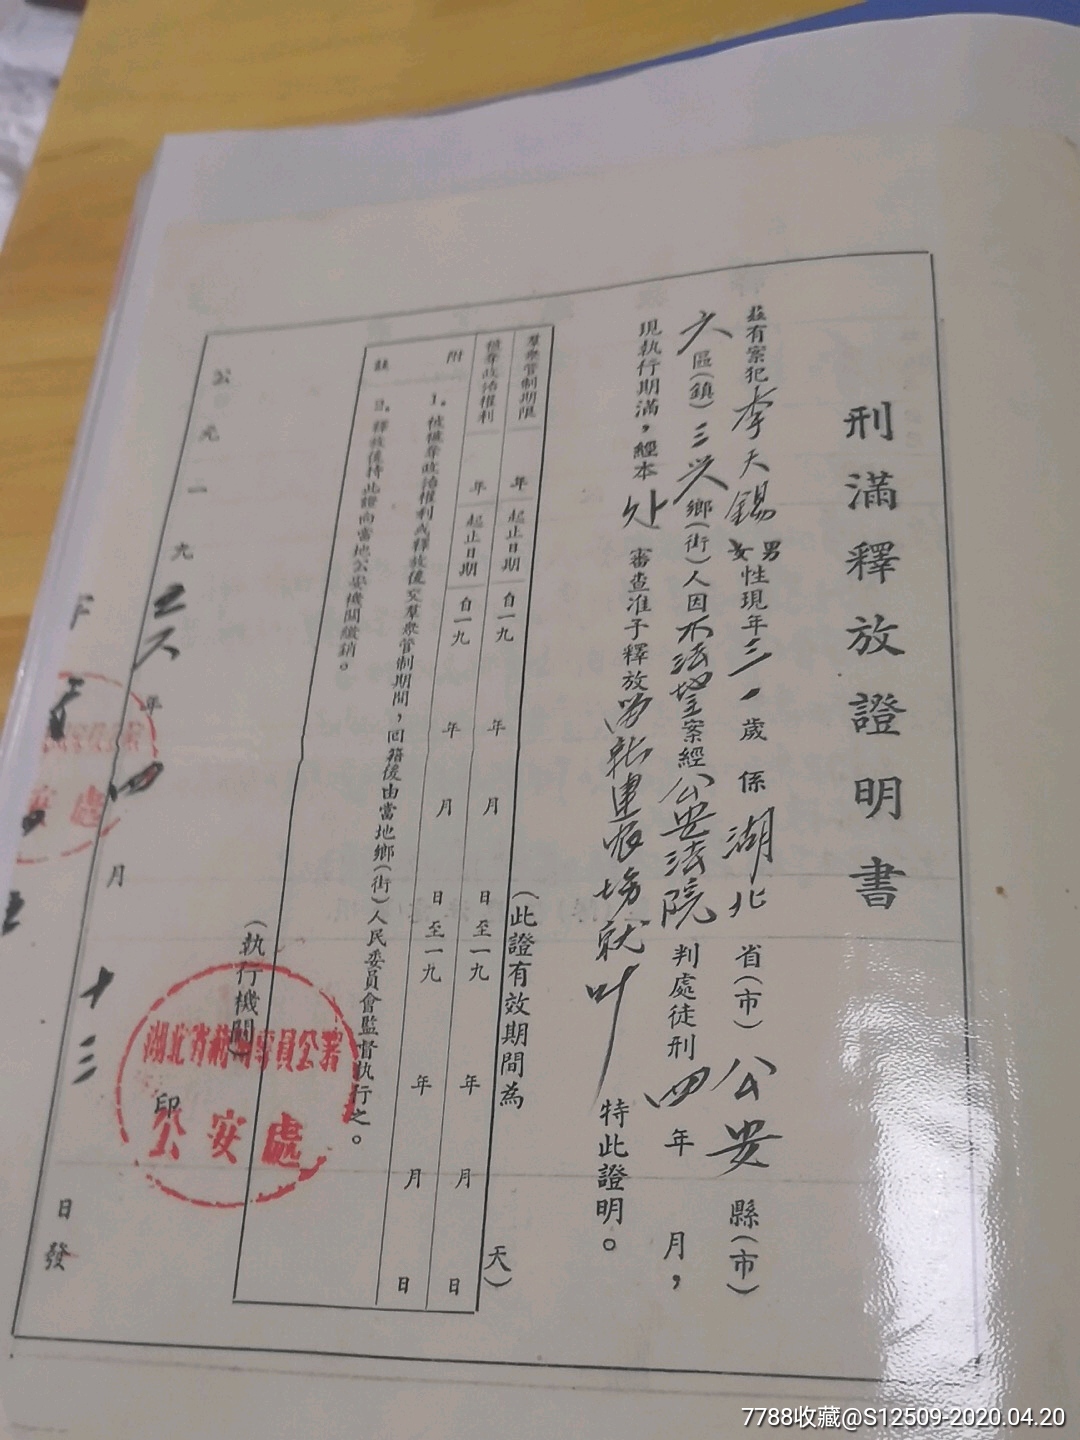 刑滿釋放證明書
茲有案犯李天錫男女性現年三一歲係湖北省(市)公安縣(市)
六區(鎮)三兴鄉(街)人因不法地主案經公安法院判處徒刑四年 月，
現執行期滿，經本处審查准予釋放 建农場就叶特此證明。
(此證有效期間為 天)
羣衆管制期限 年 起止日期 自一九 年 月 日至一九 年 月 日
褫奪政治權利 年 起止日期 自一九 年 月 日至一九 年 月 日
附註
1. 被褫奪政治權利或釋放後交羣衆管制期間，回籍後由當地鄉(街)人民委員會監督執行之。
2. 釋放後持此證向當地公安機關繳銷。
(執行機關)印
湖北省荊州專員公署
公安處
公元一九五六年四月十三日發
專員公署
安處
7788收藏@S12509-2020.04.20